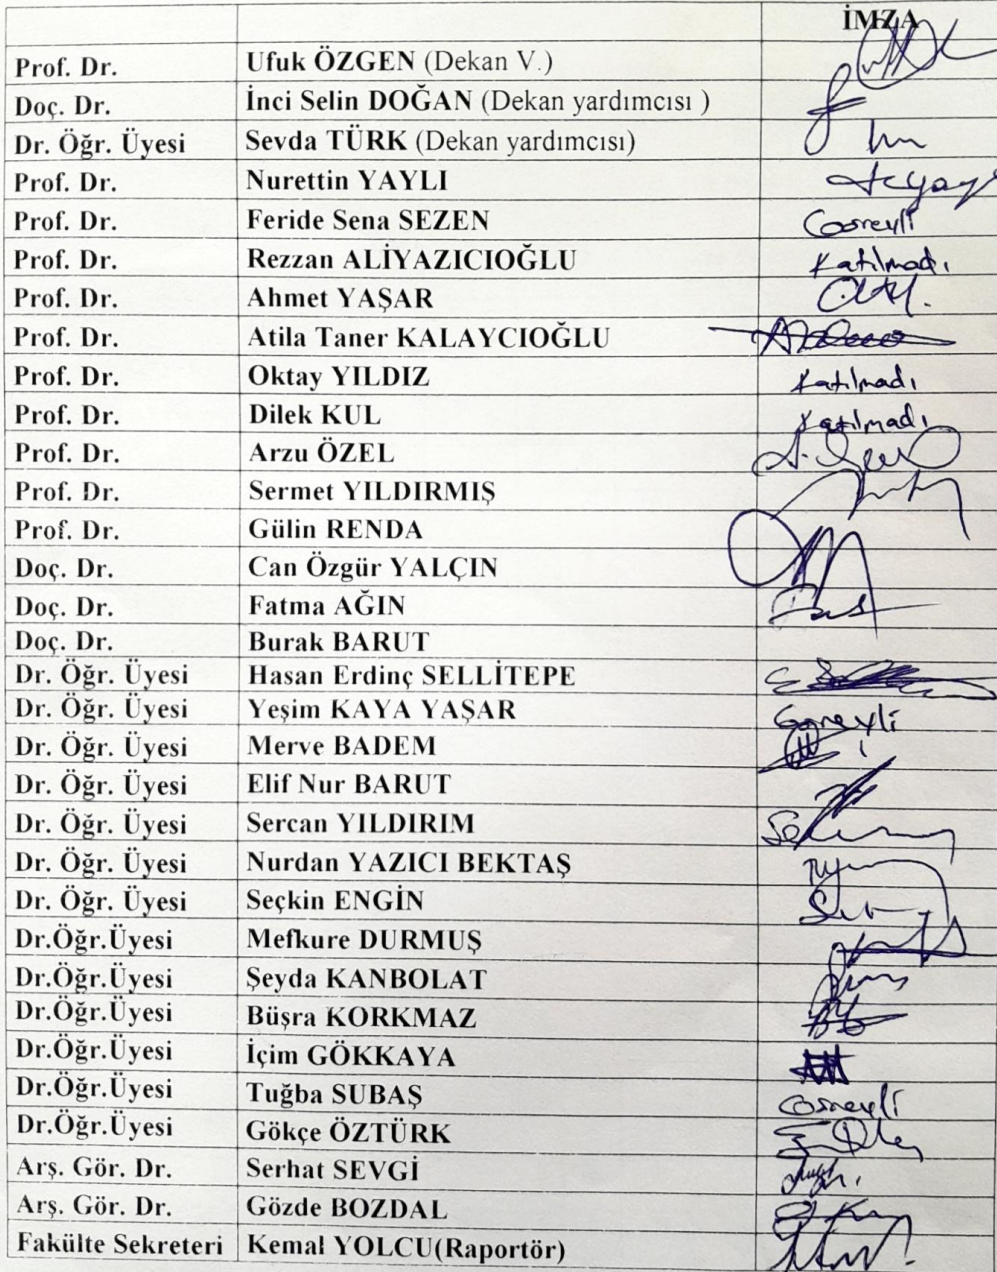 İMZA
Prof. Dr. Ufuk ÖZGEN (Dekan V.)
Doç. Dr. İnci Selin DOĞAN (Dekan yardımcısı )
Dr. Öğr. Üyesi Sevda TÜRK (Dekan yardımcısı)
Prof. Dr. Nurettin YAYLI
Prof. Dr. Feride Sena SEZEN Görevli
Prof. Dr. Rezzan ALİYAZICIOĞLU Katılmadı
Prof. Dr. Ahmet YAŞAR
Prof. Dr. Atila Taner KALAYCIOĞLU
Prof. Dr. Oktay YILDIZ Katılmadı
Prof. Dr. Dilek KUL Katılmadı
Prof. Dr. Arzu ÖZEL
Prof. Dr. Sermet YILDIRMIŞ
Prof. Dr. Gülin RENDA
Doç. Dr. Can Özgür YALÇIN
Doç. Dr. Fatma AĞIN
Doç. Dr. Burak BARUT
Dr. Öğr. Üyesi Hasan Erdinç SELLİTEPE
Dr. Öğr. Üyesi Yeşim KAYA YAŞAR Görevli
Dr. Öğr. Üyesi Merve BADEM
Dr. Öğr. Üyesi Elif Nur BARUT
Dr. Öğr. Üyesi Sercan YILDIRIM
Dr. Öğr. Üyesi Nurdan YAZICI BEKTAŞ
Dr. Öğr. Üyesi Seçkin ENGİN
Dr.Öğr.Üyesi Mefkure DURMUŞ
Dr.Öğr.Üyesi Şeyda KANBOLAT
Dr.Öğr.Üyesi Büşra KORKMAZ
Dr.Öğr.Üyesi İçim GÖKKAYA
Dr.Öğr.Üyesi Tuğba SUBAŞ Görevli
Dr.Öğr.Üyesi Gökçe ÖZTÜRK
Arş. Gör. Dr. Serhat SEVGİ
Arş. Gör. Dr. Gözde BOZDAL
Fakülte Sekreteri Kemal YOLCU(Raportör)